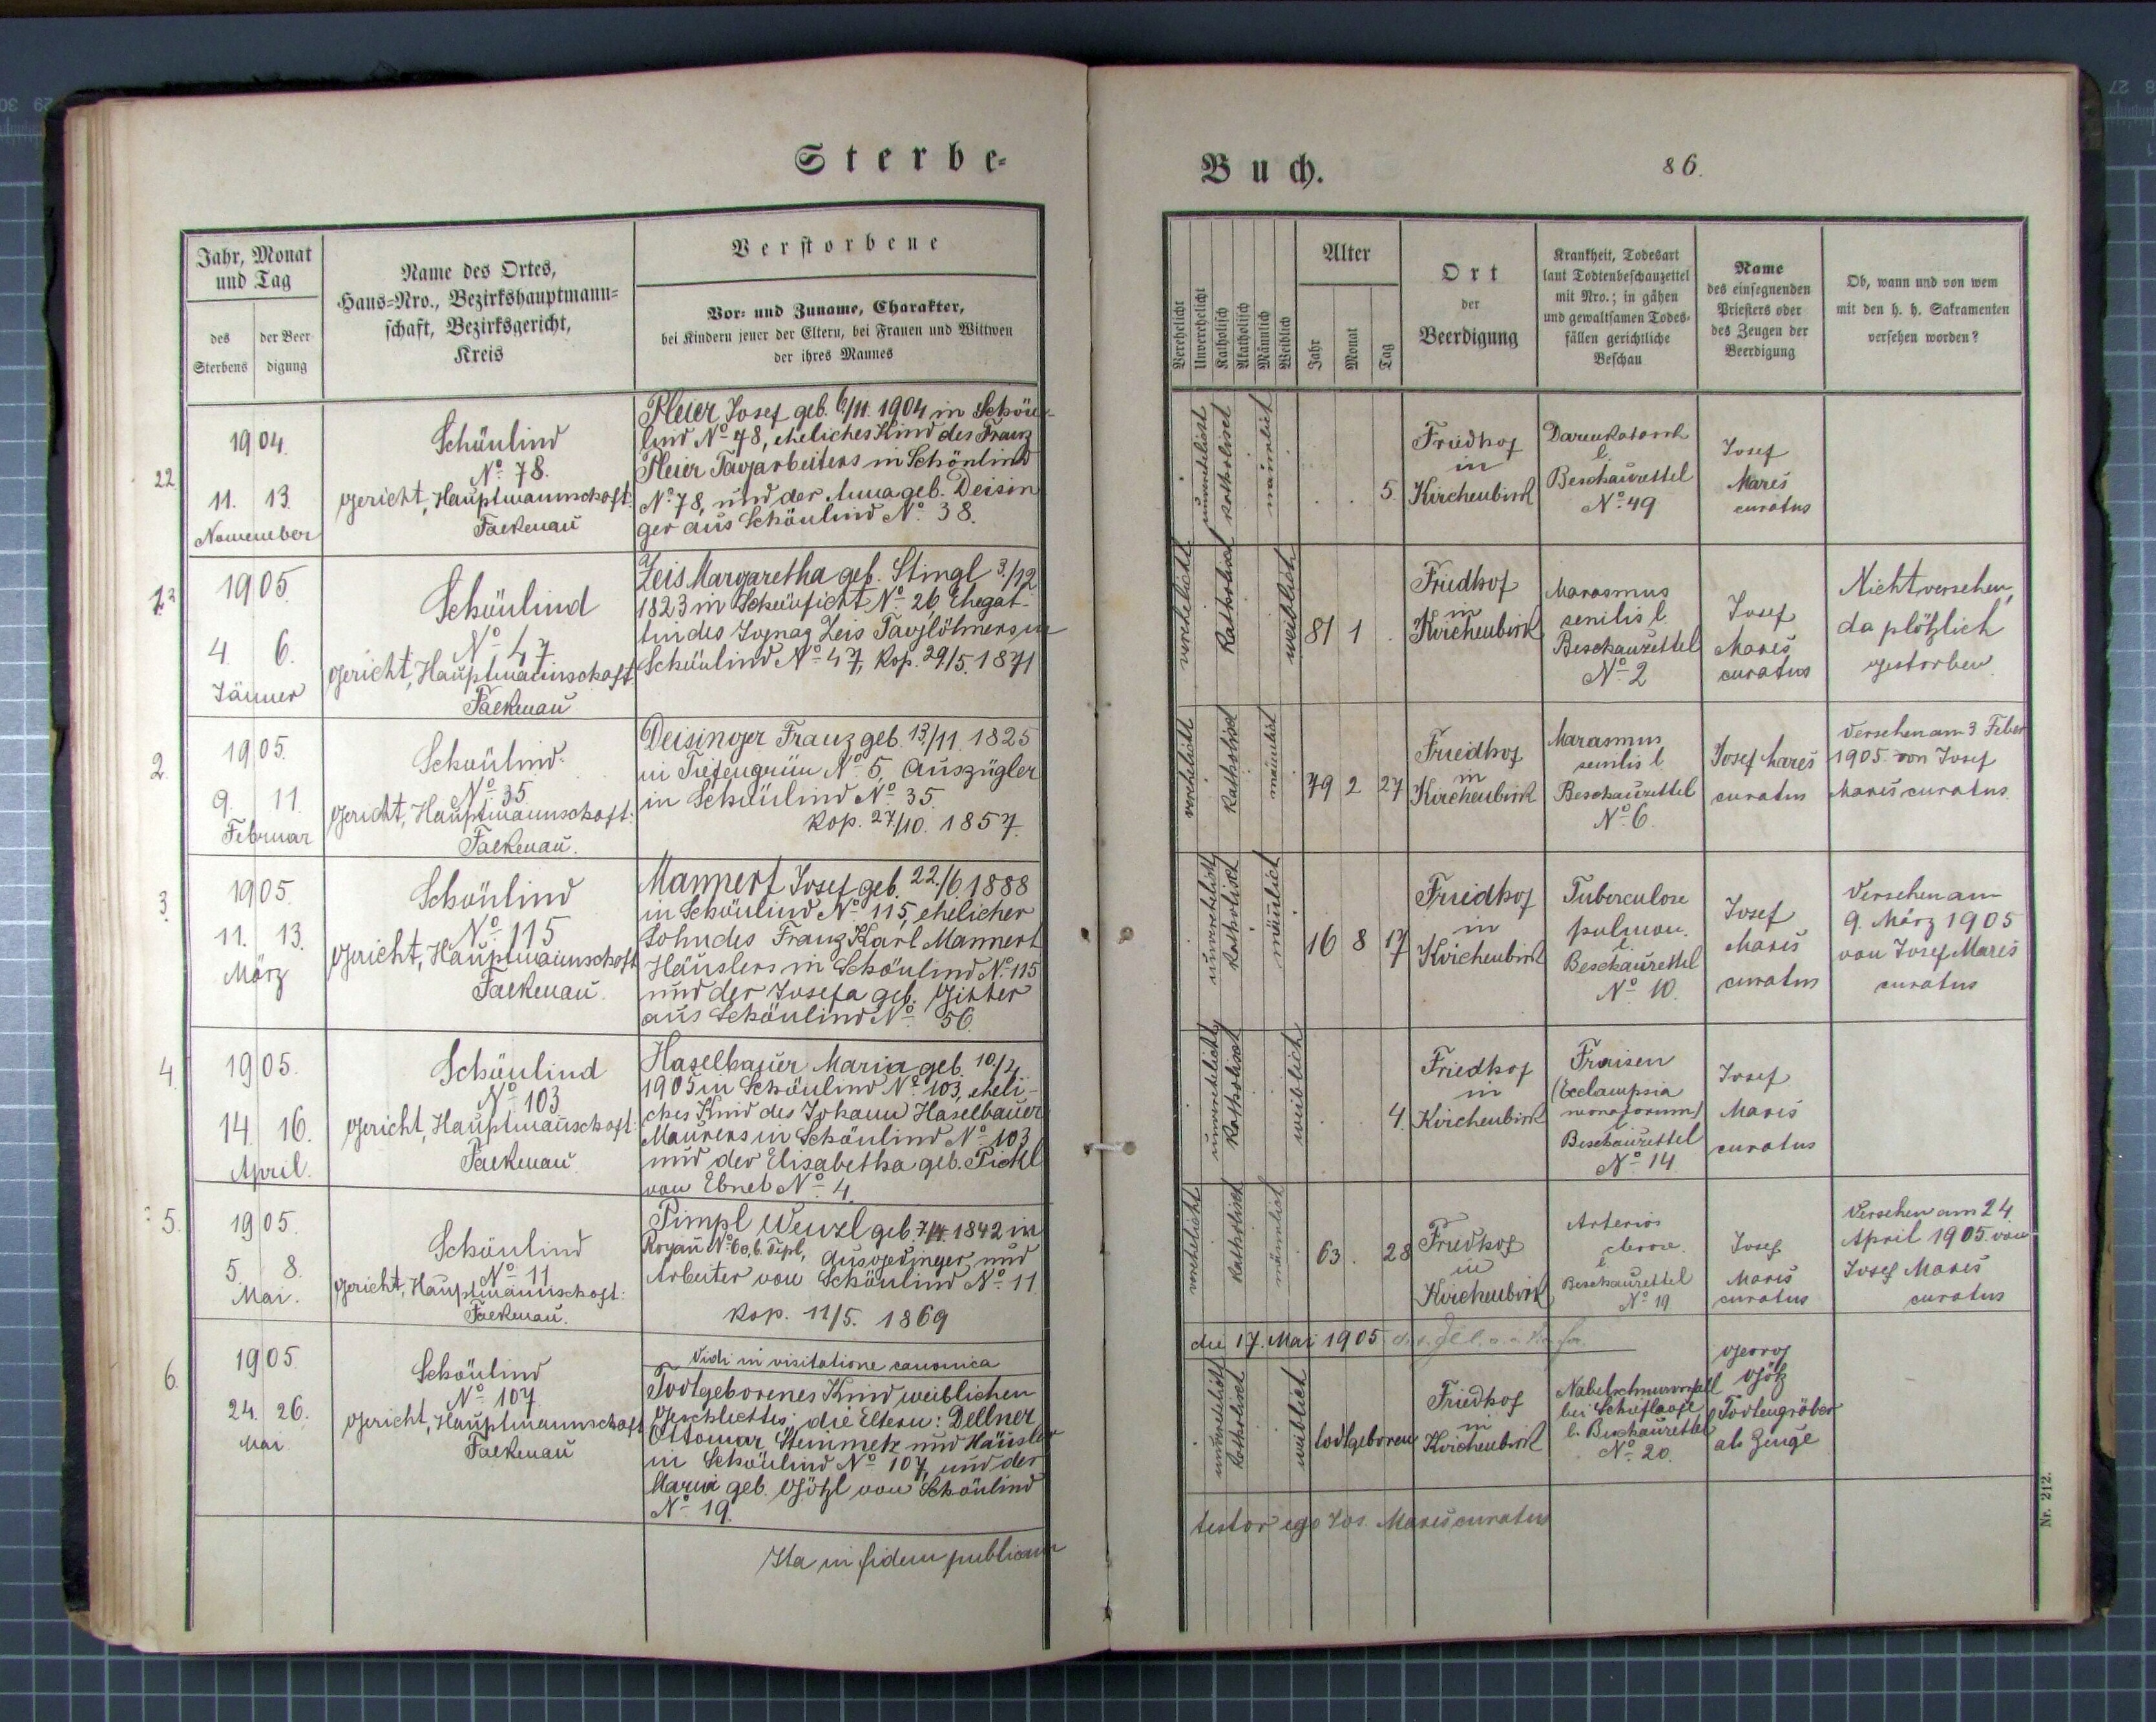 Sterbe-
Jahr, Monat und Tag
des Sterbens
der Beer digung
Name des Ortes,
Haus-Nro., Bezirkshauptmann-
schaft, Bezirksgericht,
Kreis
Verstorbene
Vor- und Zuname, Charakter,
bei Kindern jener der Eltern, bei Frauen und Wittwen
der ihres Mannes
22
1904.
11. 13.
November
Schönlind
No. 78.
Gericht, Hauptmannschaft:
Falkenau
Pleier Josef geb. 6/11. 1904 in Schön-
lind No 78, eheliches Kind des Franz
Pleier Tagarbeiters in Schönlind
No 78, und der Anna geb. Deisin
ger aus Schönlind No. 38.
1905.
4. 6.
Jänner
Schönlind
No. 47
Gericht, Hauptmannschaft:
Falkenau
Zeis Margaretha geb. Stingl 3./12
1823 in Schönficht No. 26, Ehegat-
tin des Ignaz Zeis Taglöhners in
Schönlind No. 47, Kop. 29/5. 1871
2.
1905.
9. 11.
Februar
Schönlind
No. 35.
Gericht, Hauptmannschaft:
Falkenau.
Deisinger Franz geb. 13/11. 1825
in Tiefengrün No. 5, Auszügler
in Schönlind No. 35.
Kop. 27/10. 1857.
3.
1905.
11. 13.
März
Schönlind
No. 115
Gericht, Hauptmannschaft
Falkenau.
Mannert Josef geb. 22./6 1888
in Schönlind No. 115, ehelicher
Sohn des Franz Karl Mannert
Häuslers in Schönlind No. 115
und der Josefa geb.
aus Schönlind No. 56.
4.
1905.
14. 16.
April.
Schönlind
No. 103
Gericht, Hauptmannschaft:
Falkenau.
Haselbauer Maria geb. 10/
1905 in Schönlind No. 103, eheli-
ches Kind des Johann Haselbauer
Maurers in Schönlind No. 103
und der Elisabetha geb. Pickl
von Ebnet No. 4.
5.
1905.
5. 8.
Mai.
Schönlind
No. 11
Gericht, Hauptmannschaft:
Falkenau.
Pimpl Wenzl geb. 7/4. 1842 in
Royau No. 60, b. Tepl, Ausgedinger und
Arbeiter von Schönlind No. 11
Kop. 11/5. 1869
Vidi in visitatione canonica
6.
1905
24. 26.
Mai
Schönlind
No. 107
Gericht, Hauptmannschaft
Falkenau
Todtgeborenes Kind weiblichen
Geschlechtes; die Eltern: Dellner
Ottomar, Steinmetz und Häusler
in Schönlind No. 107, und der
Maria geb. Götzl von Schönlind
No. 19.
Ita in fidem publicam
Buch.
86.
Verehelicht
Unverehelicht
Katholisch
Akatholisch
Männlich
Weiblich
Alter
Jahr
Monat
Tag
Ort
der
Beerdigung
Krankheit, Todesart
laut Todtenbeschauzettel
mit Nro.; in gähen
und gewaltsamen Todes-
fällen gerichtliche
Beschau
Name
des einsegnenden
Priesters oder
des Zeugen der
Beerdigung
Ob, wann und von wem
mit den h. h. Sakramenten
versehen worden?
unverehelicht
katholisch
männlich
. . 5.
Friedhof
in
Kirchenbirk
Darmkatarrh
l.
Beschauzettel
No. 49
Josef
Mareš
curatus
verehelicht
katholisch
weiblich
81 1 .
Friedhof
in
Kirchenbirk
Marasmus
senilis l.
Beschauzettel
No. 2
Josef
Mareš
curatus
Nicht versehen,
da plötzlich
gestorben.
verehelicht
katholisch
männlich
79 2 27
Friedhof
in
Kirchenbirk
Marasmus
senilis l.
Beschauzettel
No. 6.
Josef Mareš
curatus
Versehen am 3. Feber
1905. von Josef
Mareš curatus.
unverehelicht
katholisch
männlich
16 8 17
Friedhof
in
Kirchenbirk
Tuberculose
pulmon.
l.
Beschauzettel
No. 10.
Josef
Mareš
curatus
Versehen am
9. März 1905
von Josef Mareš
curatus
unverehelicht
katholisch
weiblich
. . 4.
Friedhof
in
Kirchenbirk
Fraisen
(Ecclampsia
neonatorum)
l.
Beschauzettel
No. 14.
Josef
Mareš
curatus
verehelicht
katholisch
männlich
63 . 28
Friedhof
in
Kirchenbirk
Arterios
clerose.
l.
Beschauzettel
No. 19
Josef
Mareš
curatus
Versehen am 24.
April 1905. von
Josef Mareš
curatus
die 17. Mai 1905
unverehelicht
katholisch
weiblich
todtgeboren
Friedhof
in
Kirchenbirk
Nabelschnurvorfall
bei Schieflage
l. Beschauzettel
No. 20.
Georg
Götz
Todtengräber
als Zeuge
testor ego Jos. Mareš curatus
Nr. 212.